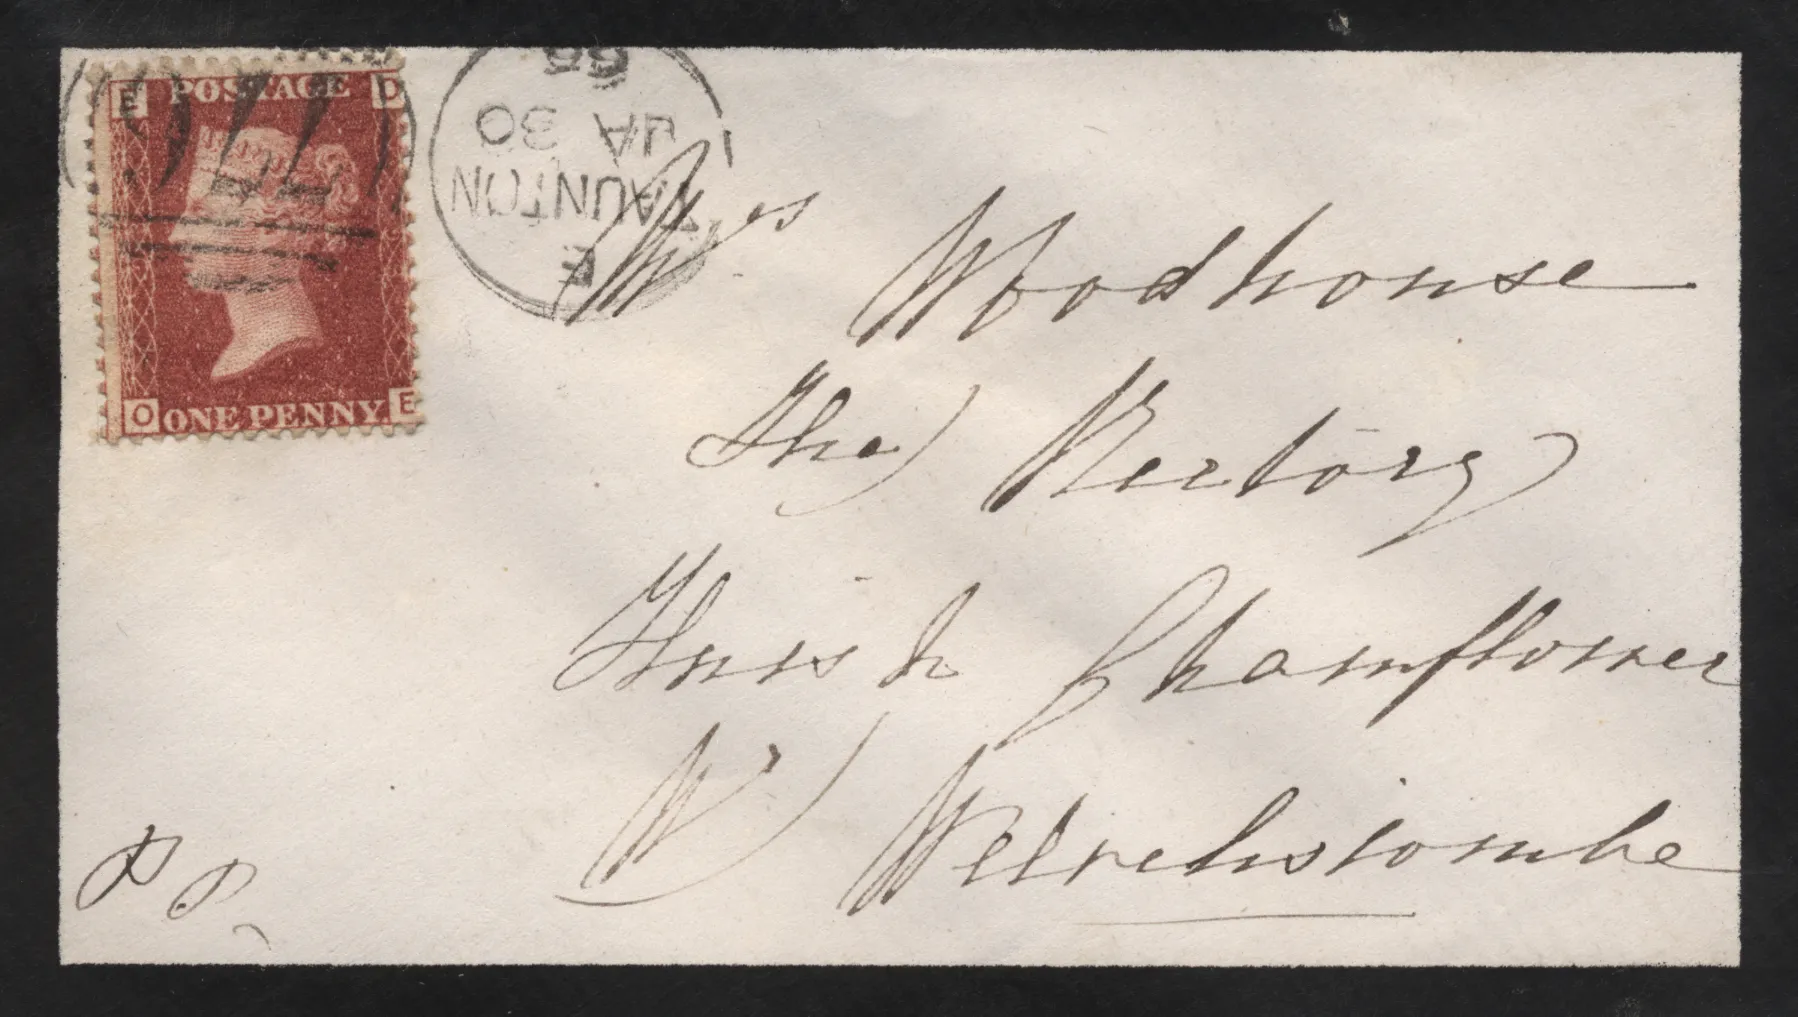 E POSTAGE D
O ONE PENNY E
TAUNTON
JA 30
65
Mrs Woodhouse
The Rectory
Huish Champflower
Nr Wiveliscombe